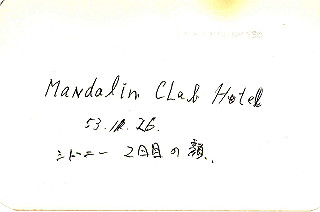 Mandalin Club Hotel
53.12.26.
シドニー 2日目の顔.